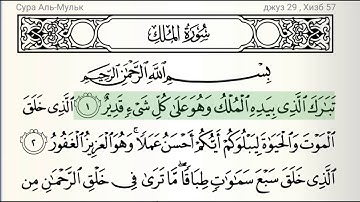 Сура Аль-Мульк джуз 29 , Хизб 57
سُورَةُ الْمُلْكِ
بِسْمِ اللَّهِ الرَّحْمَٰنِ الرَّحِيمِ
تَبَارَكَ الَّذِي بِيَدِهِ الْمُلْكُ وَهُوَ عَلَىٰ كُلِّ شَيْءٍ قَدِيرٌ ١ الَّذِي خَلَقَ
الْمَوْتَ وَالْحَيَاةَ لِيَبْلُوَكُمْ أَيُّكُمْ أَحْسَنُ عَمَلًا ۚ وَهُوَ الْعَزِيزُ الْغَفُورُ ٢
الَّذِي خَلَقَ سَبْعَ سَمَاوَاتٍ طِبَاقًا ۖ مَّا تَرَىٰ فِي خَلْقِ الرَّحْمَٰنِ مِن